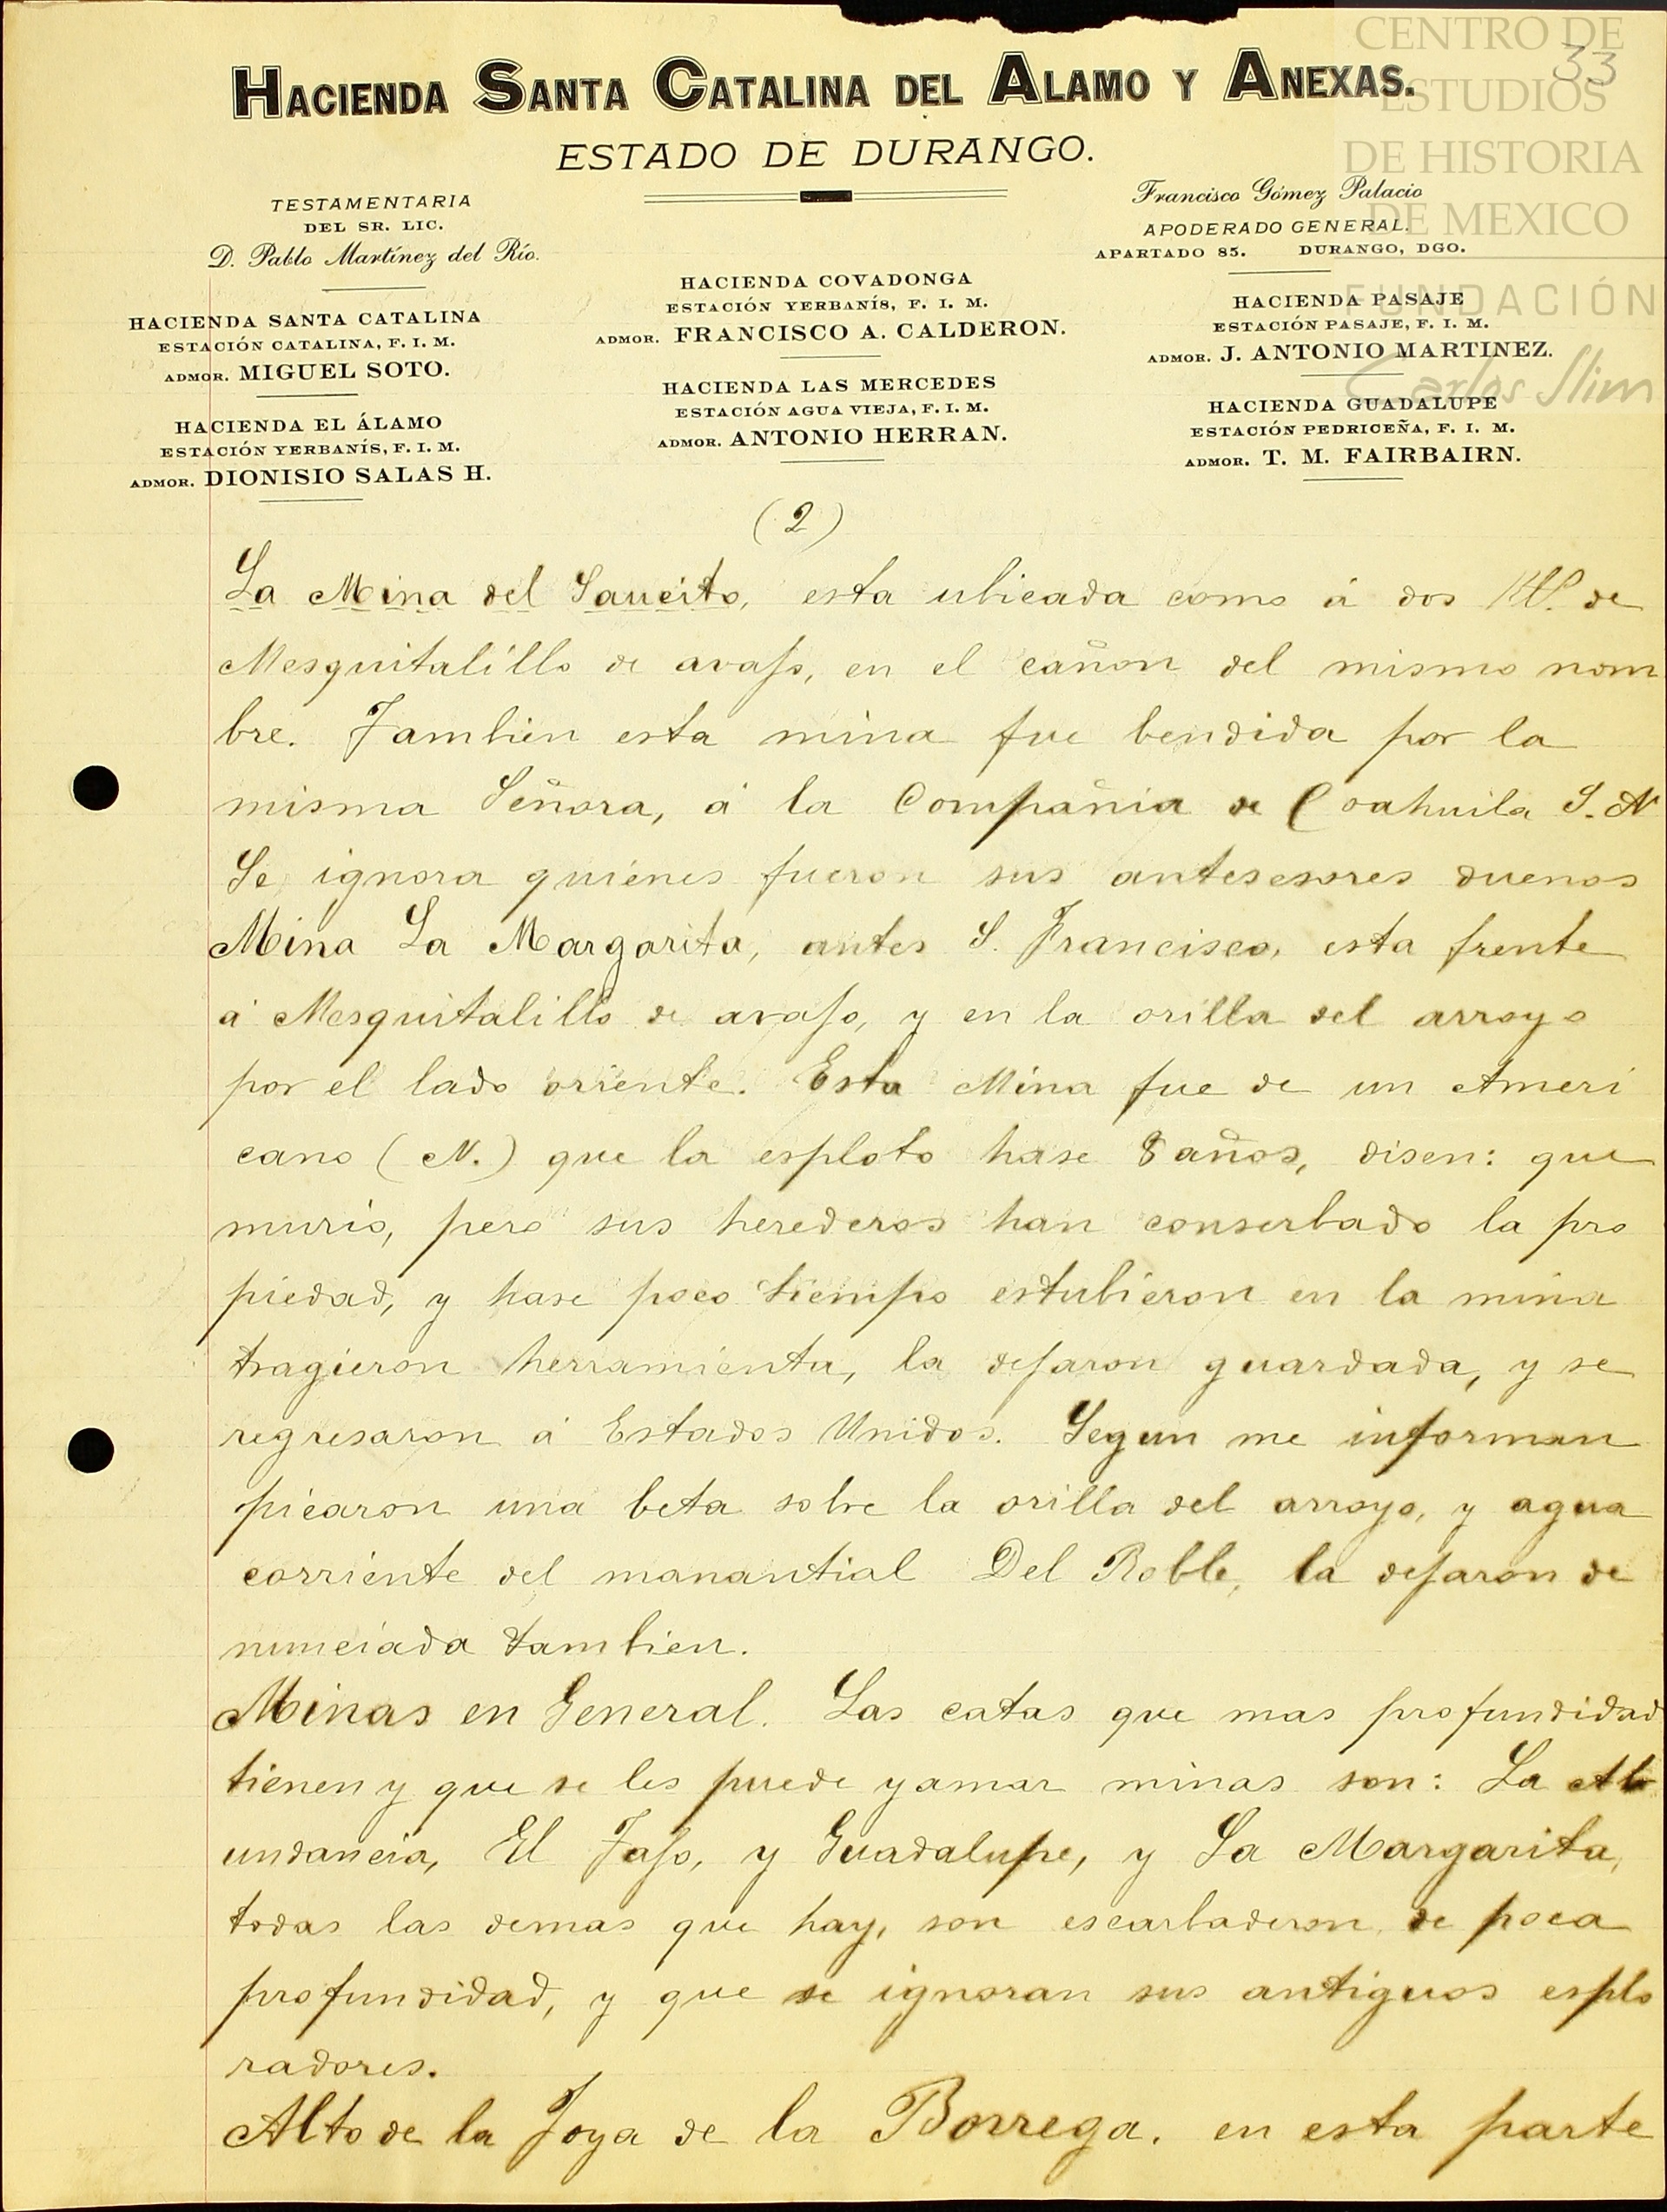 CENTRO DE
ESTUDIOS
DE HISTORIA
DE MEXICO
FUNDACIÓN
Carlos Slim
33
HACIENDA SANTA CATALINA DEL ALAMO Y ANEXAS.
ESTADO DE DURANGO.
TESTAMENTARIA
DEL SR. LIC.
D. Pablo Martínez del Río.
HACIENDA SANTA CATALINA
ESTACIÓN CATALINA, F. I. M.
ADMOR. MIGUEL SOTO.
HACIENDA EL ÁLAMO
ESTACIÓN YERBANÍS, F. I. M.
ADMOR. DIONISIO SALAS H.
HACIENDA COVADONGA
ESTACIÓN YERBANÍS, F. I. M.
ADMOR. FRANCISCO A. CALDERON.
HACIENDA LAS MERCEDES
ESTACIÓN AGUA VIEJA, F. I. M.
ADMOR. ANTONIO HERRAN.
Francisco Gómez Palacio
APODERADO GENERAL.
APARTADO 85. DURANGO, DGO.
HACIENDA PASAJE
ESTACIÓN PASAJE, F. I. M.
ADMOR. J. ANTONIO MARTINEZ.
HACIENDA GUADALUPE
ESTACIÓN PEDRICEÑA, F. I. M.
ADMOR. T. M. FAIRBAIRN.
(2)
La Mina del Saucito, esta ubicada como á dos Kl. de
Mesquitalillo de avajo, en el cañon del mismo nom
bre. Tambien esta mina fue bendida por la
misma Señora, á la Compañia de Coahuila S. N
Se ignora quienes fueron sus antesesores duenos
Mina La Margarita, antes S. Francisco, esta frente
á Mesquitalillo de avajo, y en la orilla del arroyo
por el lado oriente. Esta Mina fue de un Ameri
cano (N.) que la esploto hase 8 años, disen: que
murio, pero sus herederos han conserbado la pro
piedad, y hase poco tiempo estubieron en la mina
tragieron herramienta, la dejaron guardada, y se
regresaron á Estados Unidos. Segun me informan
picaron una beta sobre la orilla del arroyo, y agua
corriente del manantial Del Roble, la dejaron de
nunciada tambien.
Minas en General. Las catas que mas profundidad
tienen y que se les puede yamar minas son: La Ab
undancia, El Tajo, y Guadalupe, y La Margarita,
todas las demas que hay, son escarbaderon de poca
profundidad, y que se ignoran sus antiguos esplo
radores.
Alto de la Joya de la Borrega. en esta parte